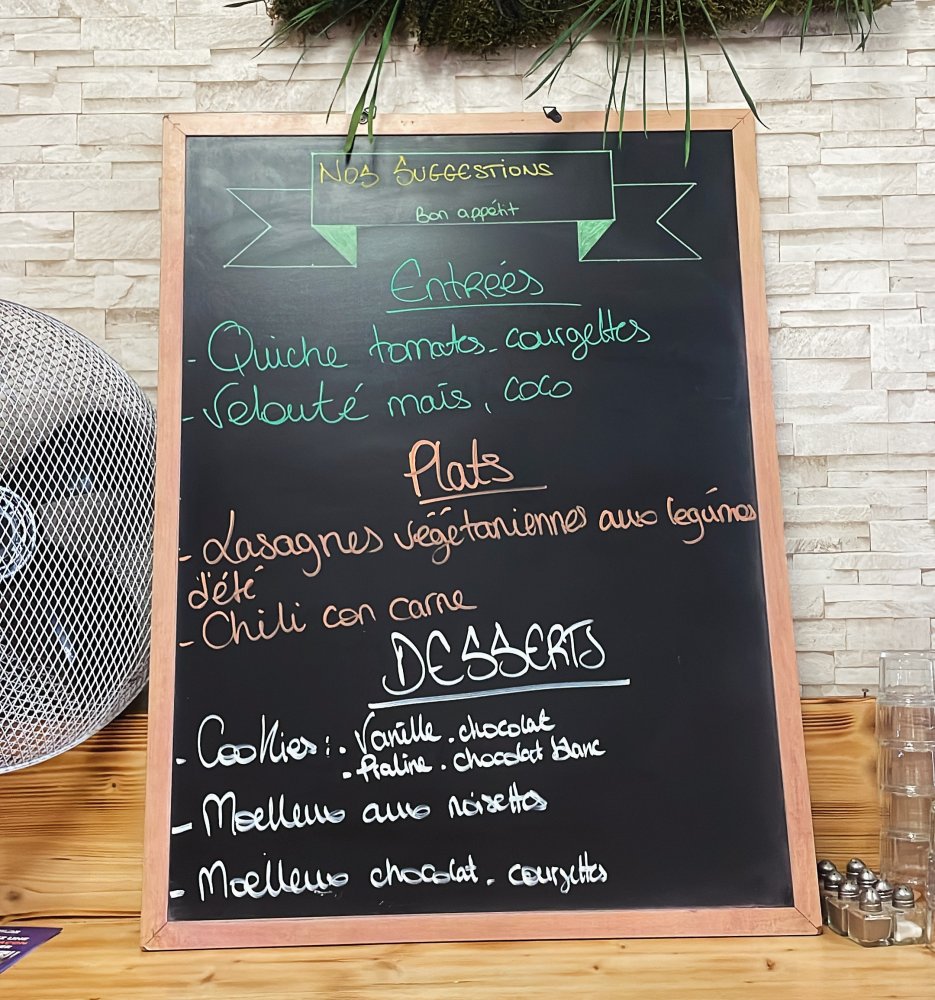 Nos Suggestions
Bon appétit
Entrées
- Quiche tomates - courgettes
- Velouté maïs, coco
Plats
- Lasagnes végétariennes aux légumes
d'été
- Chili con carne
DESSERTS
- Cookies : . Vanille - chocolat
. Praline - chocolat blanc
- Moelleux aux noisettes
- Moelleux chocolat - courgettes